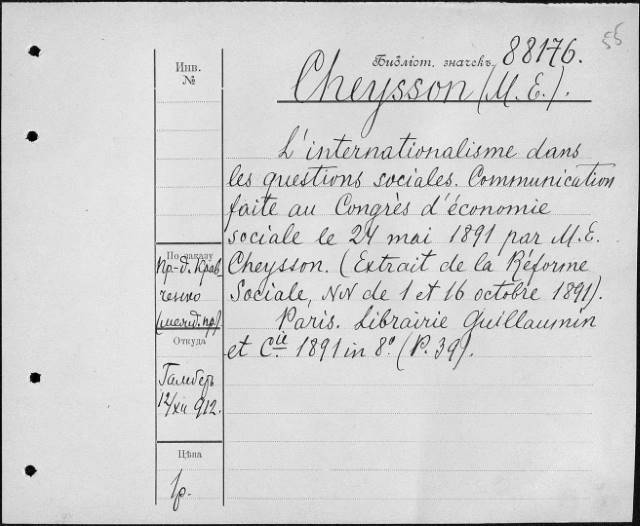 55
Библіот. значекъ 88176.
Инв.
№
Cheysson (M. E.).
L'internationalisme dans
les questions sociales. Communication
faite au Congrès d'économie
sociale le 24 mai 1891 par M. E.
Cheysson. (Extrait de la Réforme
Sociale, NN de 1 et 16 octobre 1891).
Paris. Librairie Guillaumin
et Cie 1891 in 8º. (P. 39).
По заказу
пр-д. Крав
ченко
(межд. пр).
Откуда
Гамберъ
12/XII 912.
Цѣна
1р.